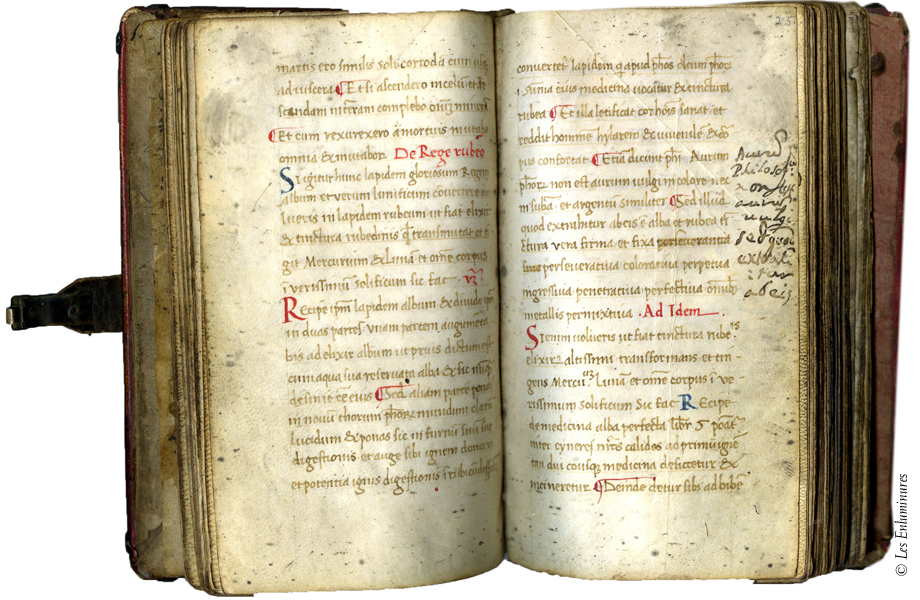 martis ero similis soli corroda eum usq
ad viscera Et si ascendero in celum et de
scendam in terram complebo
Et cum rexurexero a mortuis mutabo
omnia et mutabor De Rege rubeo
Si igitur hunc lapidem gloriosum Regem
album et verum lunificum convertere vo
lueris in lapidem rubeum ut fiat elixir
et tinctura rubedinis q transmutat et ti
git Mercurium et lunā et omē corpus
i verissimū solificum sic fac
Recipe ipm lapidem album et divide ipm
in duas partes unam partem augmēta
bis ad elixir album ut prius dictum est
cum aqua sua reservata alba et sic
Sed aliam partē pone
in novū thorum mundum clarū
lucidum et ponas sic in furnū suū
digestionis et auge sibi ignem donec vi
et potentia ignis digestionis
25
convertet lapidem q apud phos oleum
medicina vocatur et tinctura
rubea Et illa letificat cor hois sanat et
reddit hominē hylarem et iuvenilē et cor
pus confortat Etiā dicunt phi Aurum
non est aurum vulgi in colore nec
in suba et argentū similiter Sed illud
quod extrahitur ab eis ē alba et rubea ti
ctura vera firma et fixa perseverantia
sive perseverativa colorativa perpetua
ingressiva penetrativa perfectiva
metallis permixtiva Ad Idem
Si enim volueris ut fiat tinctura rube
elixir altissimi transformans et tin
gens Mercu Lunā et omē corpus i ve
rissimum solificum Sic fac Recipe
de medicina alba perfecta libr 5
inter cyneres calidos ad primū ignē
tam diu cousq medicina desiccetur et
incineretur Deinde detur sibi ad bibē
Aurū
Philosof
non est
aurū
vulgi
sed quod
extrahi
tur
ab eis
© Les Enluminures